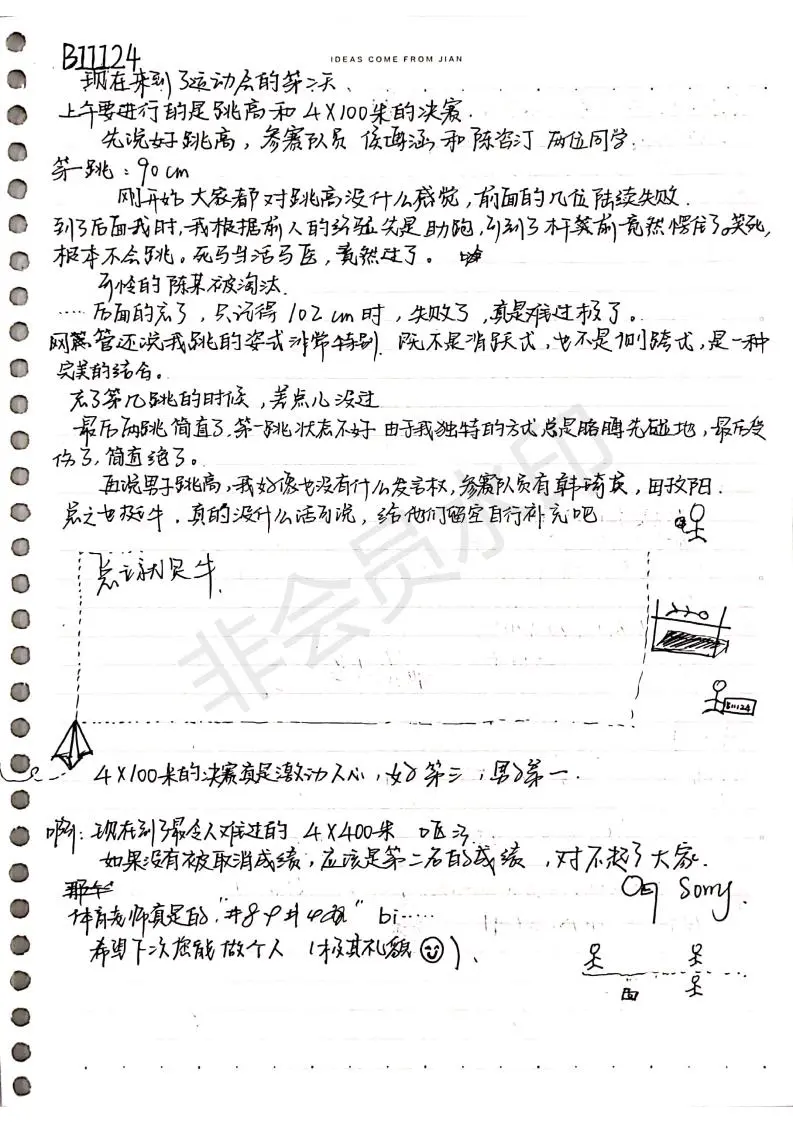 B11124
IDEAS COME FROM JIAN
现在来到了运动会的第二天、
上午要进行的是跳高和4X100米的决赛.
先说女子跳高，参赛队员 侯雨涵 和 陈咨汀 两位同学.
第一跳：90cm
刚开始大家都对跳高没什么感觉，前面的几位陆续失败.
到了后面我时，我根据前人的经验先是助跑，到了杆前竟然愣住了。笑死，
根本不会跳。死马当活马医，竟然过了。
可怜的陈某被淘汰.
……后面的忘了，只记得102cm时，失败了，真是难过极了。
网管还说我跳的姿式非常特别.既不是背跃式，也不是侧跨式，是一种
完美的结合。
忘了第几跳的时候，差点儿没过
最后两跳简直了.第一跳状态不好 由于我独特的方式总是胳膊先碰地，最后受
伤了，简直绝了。
再说男子跳高，我好像也没有什么发言权，参赛队员有韩琦，田牧阳.
总之也挺牛，真的没什么话可说，给他们留空自行补充吧
总之就是牛.
B11124
4X100米的决赛真是激动人心，女子第三，男子第一.
啊：现在到了最令人难过的 4X400米
如果没有被取消成绩，应该是第二名的成绩，对不起了大家.
Sorry.
体育老师真是的 bi……
希望下次您能做个人（极其礼貌）、
非会员水印